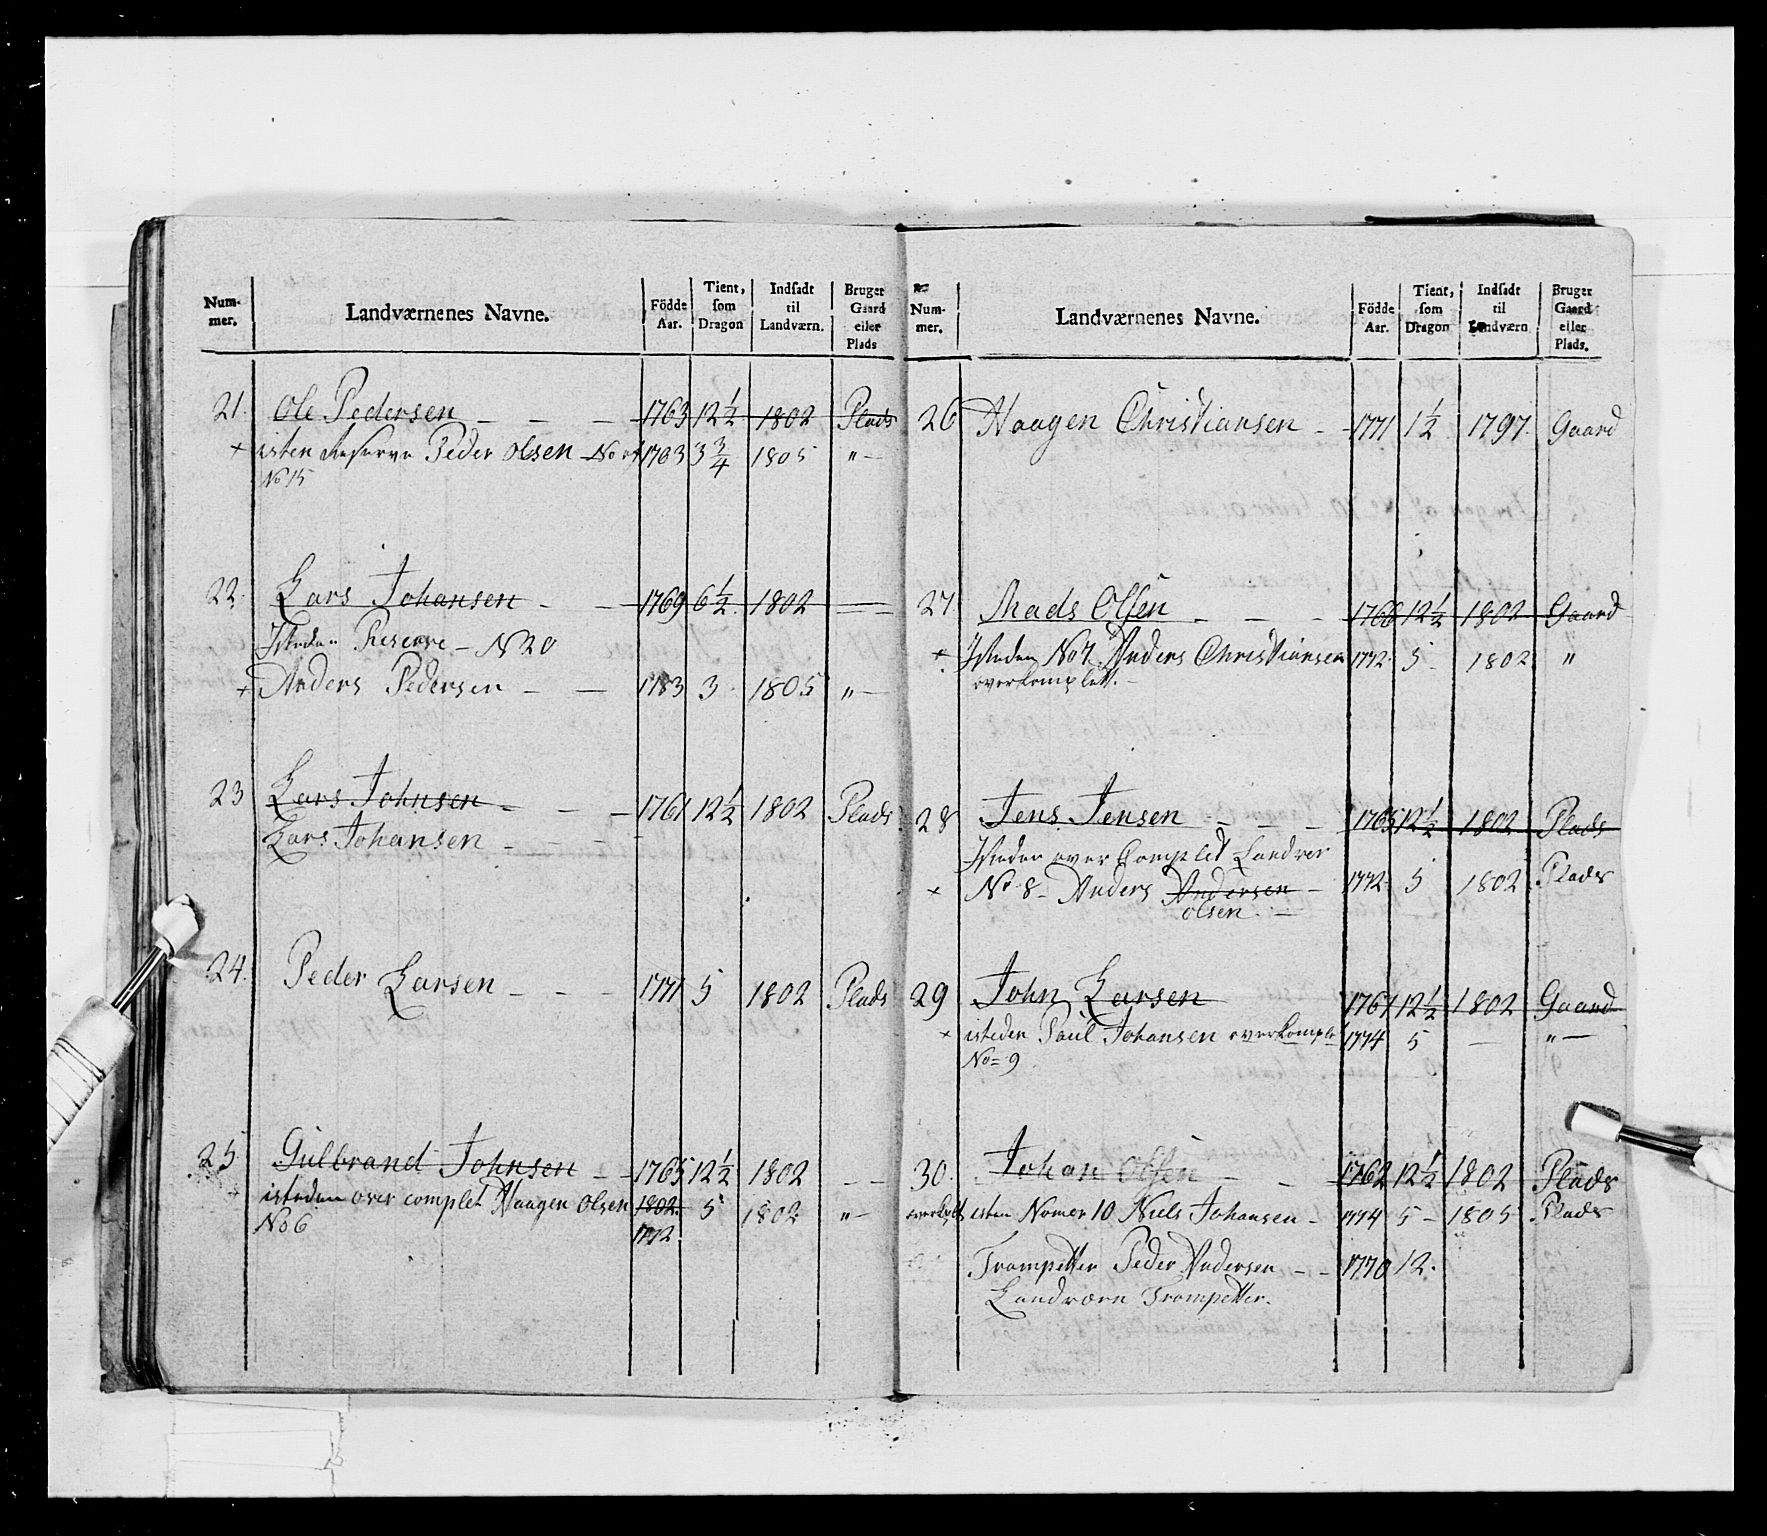 Num-
mer.
Landværnenes Navne.
Födde
Aar.
Tient,
som
Dragon
Indsadt
til
Landværn.
Bruger
Gaard
eller
Plads
21. Ole Pedersen - - - 1763 12 1/2 1802 Plads
+ isten Reserve Peder Olsen No 1763 3 3/4 1805 " -
No 15
22. Lars Johansen - - 1769 6 1/2 1802 -
Isteden Reserve - N 20
+ Anders Pedersen - - 1783 3 1805 " -
23 Lars Johnsen - - - 1761 12 1/2 1802 Plads
Lars Johansen - - - -
24. Peder Larsen - - - 1771 5 1802 Plads
25 Gulbrand Johnsen - - 1765 12 1/2 1802 - -
isteden over complet Haagen Olsen 1802. 5 1802 " -
No 6 1772.
Num-
mer.
Landværnenes Navne.
Födde
Aar.
Tient,
som
Dragon
Indsadt
til
Landværn
Bruger
Gaard
eller
Plads.
26 Haagen Christiansen - 1771 1 1/2 1797. Gaard
27 Mads Olsen - - - 1766 12 1/2 1802 Gaard
+ Isteden No 7 Anders Christiansen 1772. 5 1802 "
overkomplett. -
28 Jens Jensen - - - 1765 12 1/2 1802 Plads
Isteden over Complet Landver
+ No 8 - Anders Andersen - 1772. 5 1802 Plads
olsen. -
29 John Larsen 1761 12 1/2 1802 Gaard
+ isteden Paul Johansen overkomple 1774 5 - " -
No = 9
30. Johan Olsen - - 1762 12 1/2 1802 Plads
isten Nomer 10 Niels Johansen - 1774 5 - 1805 Plads
Trompetter Peder Andersen - - 1770 12.
Landværn Trompetter.